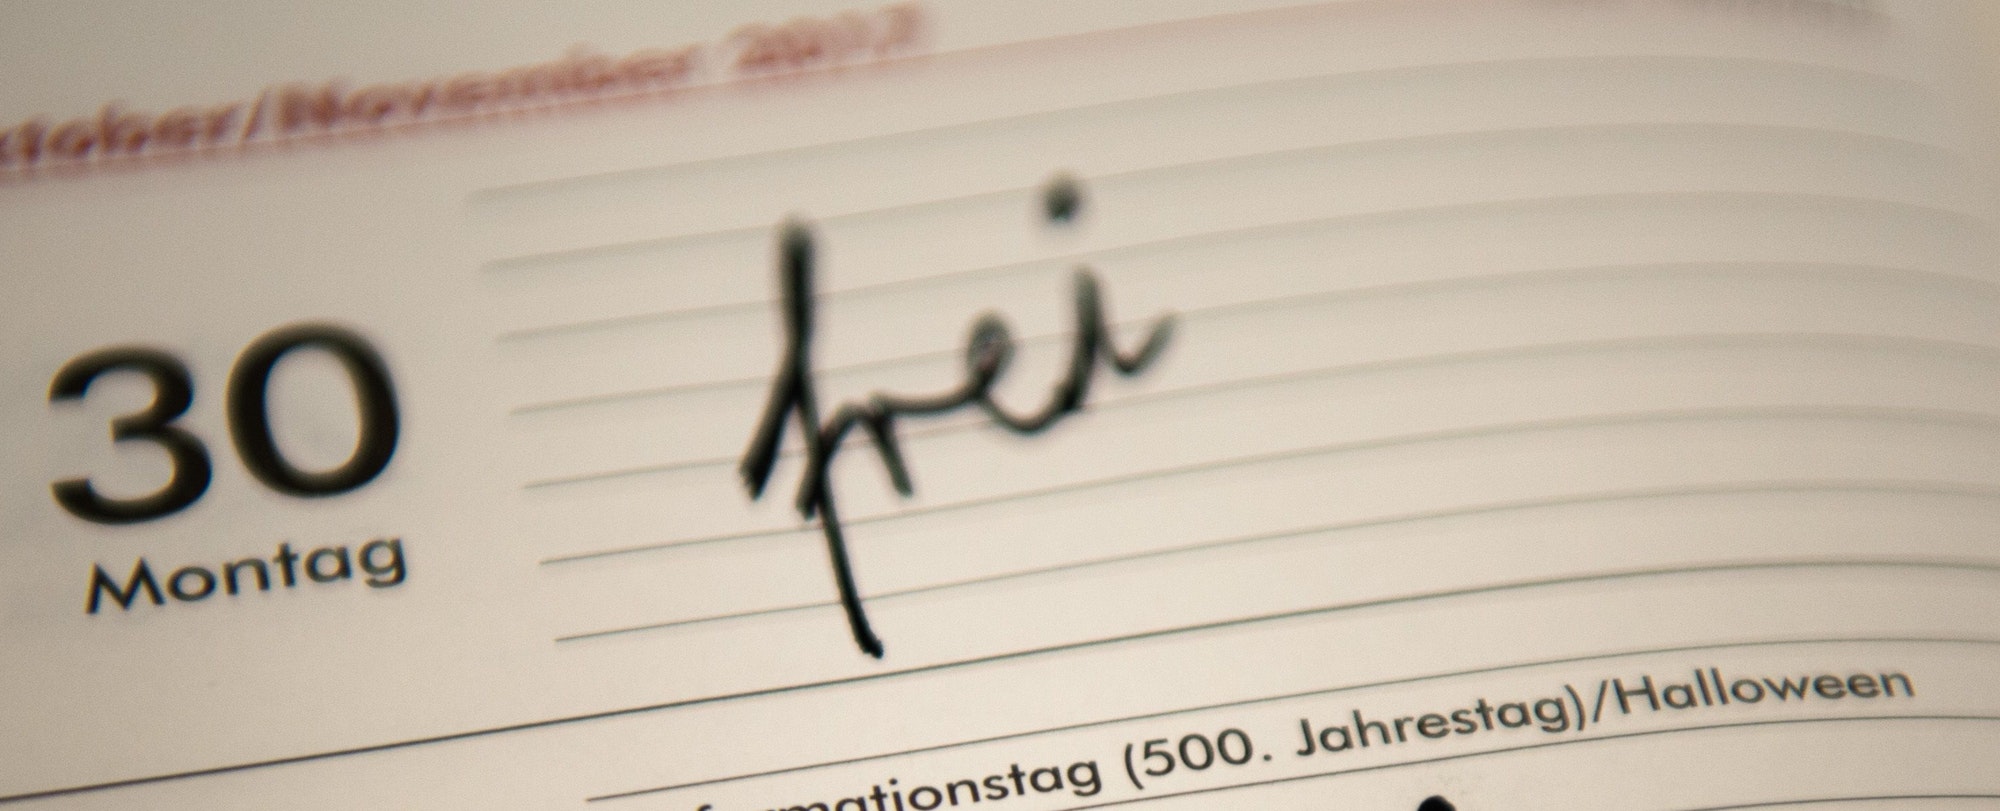 ktober/November 2017
30
Montag
frei
formationstag (500. Jahrestag)/Halloween